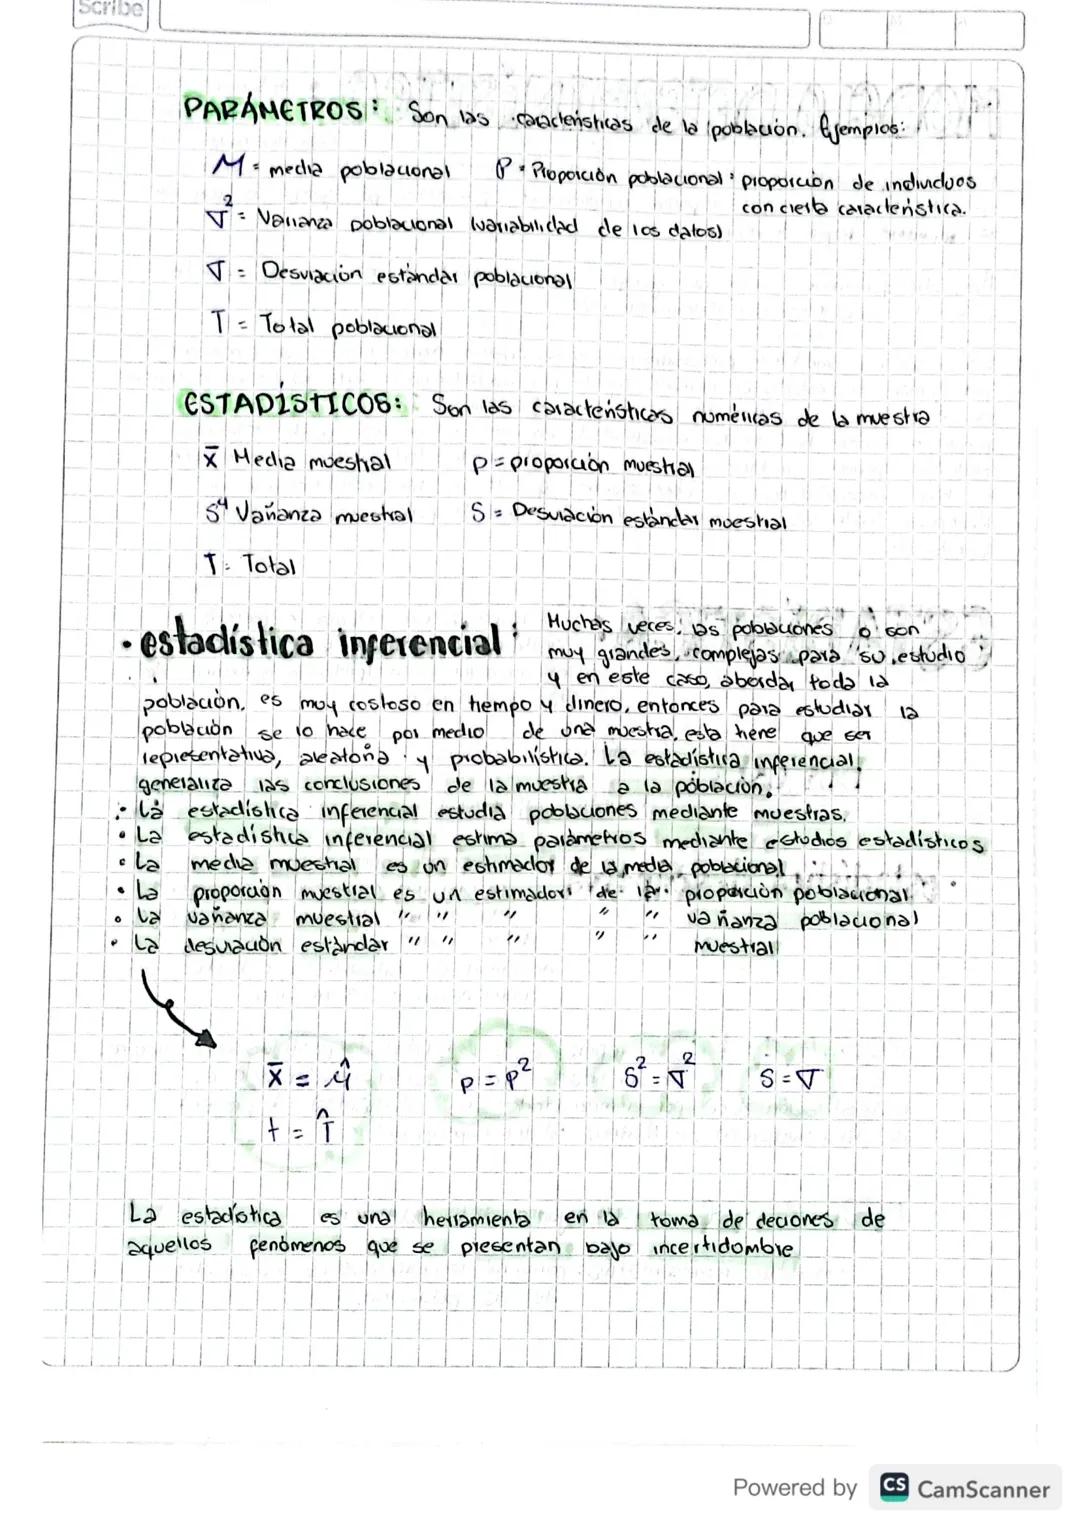 Scribe
PARÁMETROS: Son las características de la población. Ejemplos:
M = media poblacional P = Proporción poblacional: proporción de individuos
con cierta característica.
∇² = Varianza poblacional (variabilidad de los datos)
∇ = Desviación estándar poblacional
T = Total poblacional
ESTADÍSTICOS: Son las características numéricas de la muestra
x̄ Media muestral p = proporción muestral
S⁴ Varianza muestral S = Desviación estándar muestral
T: Total
• estadística inferencial: Muchas veces, las poblaciones o son
muy grandes, complejas para su estudio
y en este caso, abordar toda la
población, es muy costoso en tiempo y dinero, entonces para estudiar la
población se lo hace por medio de una muestra, esta tiene que ser
representativa, aleatoria y probabilística. La estadística inferencial
generaliza las conclusiones de la muestra a la población.
• La estadística inferencial estudia poblaciones mediante muestras.
• La estadística inferencial estima parámetros mediante estudios estadísticos
• La media muestral es un estimador de la media poblacional
• La proporción muestral es un estimador de la proporción poblacional
• La varianza muestral " " " " " varianza poblacional
• La desviación estándar " " " " " muestral
x̄ = μ̂ p = p² S² = ∇² S = ∇
t = T̂
La estadística es una herramienta en la toma de deciones de
aquellos fenómenos que se presentan bajo incertidombre
Powered by CS CamScanner